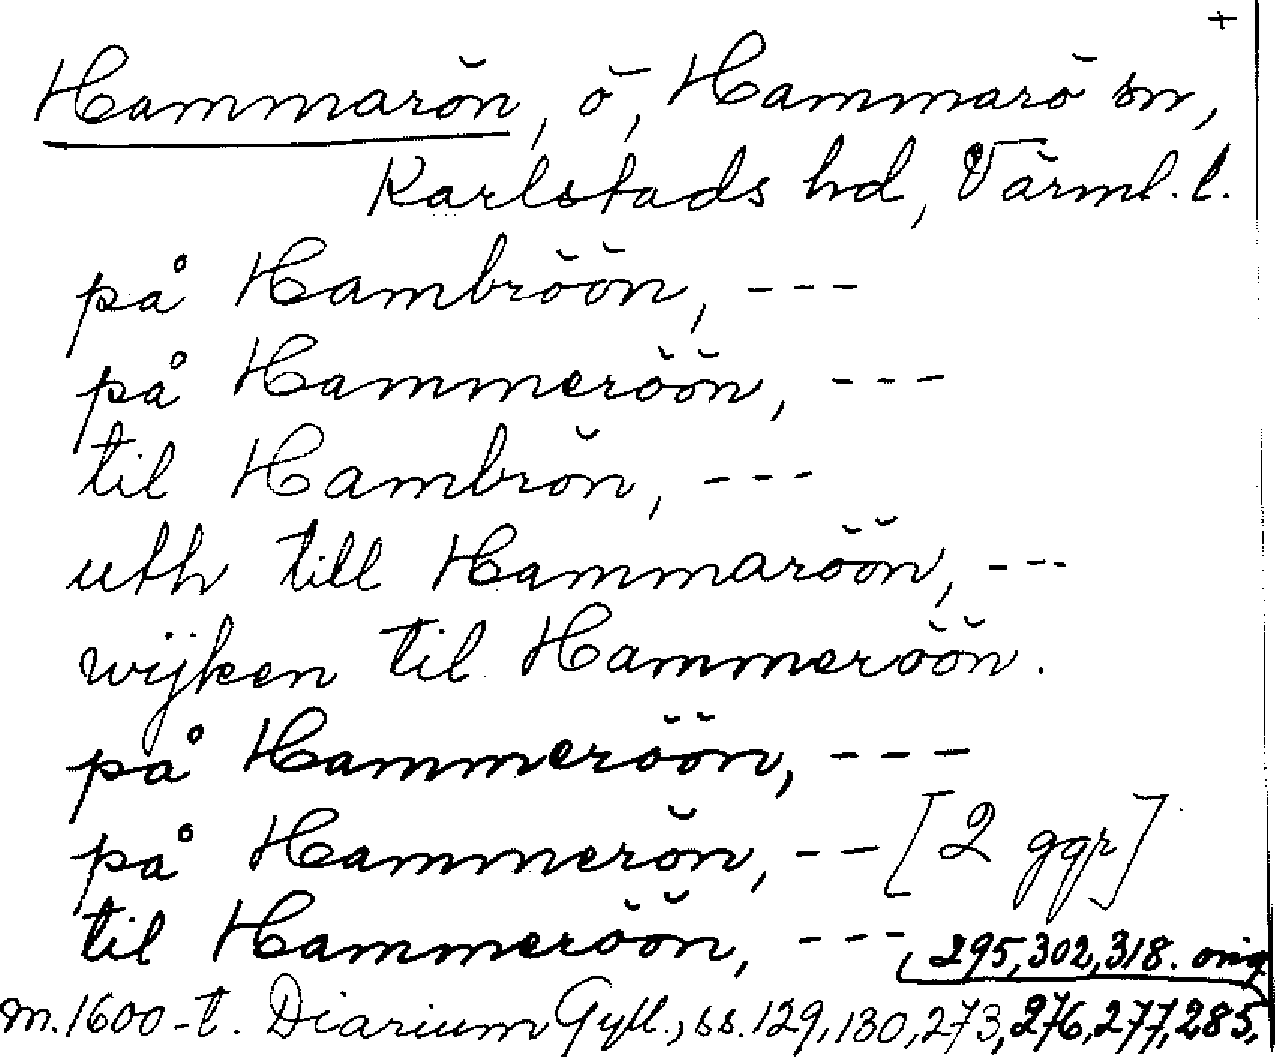 +
Hammarön, ö, Hammarö sn,
Karlstads hd, Värml. l.
på Hambröön, ---
på Hammeröön, ---
til Hambrön, ---
uth till Hammaröön, ---
wijken til Hammeröön.
på Hammeröön, ---
på Hammerön, -- [2 ggr]
til Hammeröön, ---
295, 302, 318. orig
m. 1600-t. Diarium Gyll., ss. 129, 130, 273, 276, 277, 285,